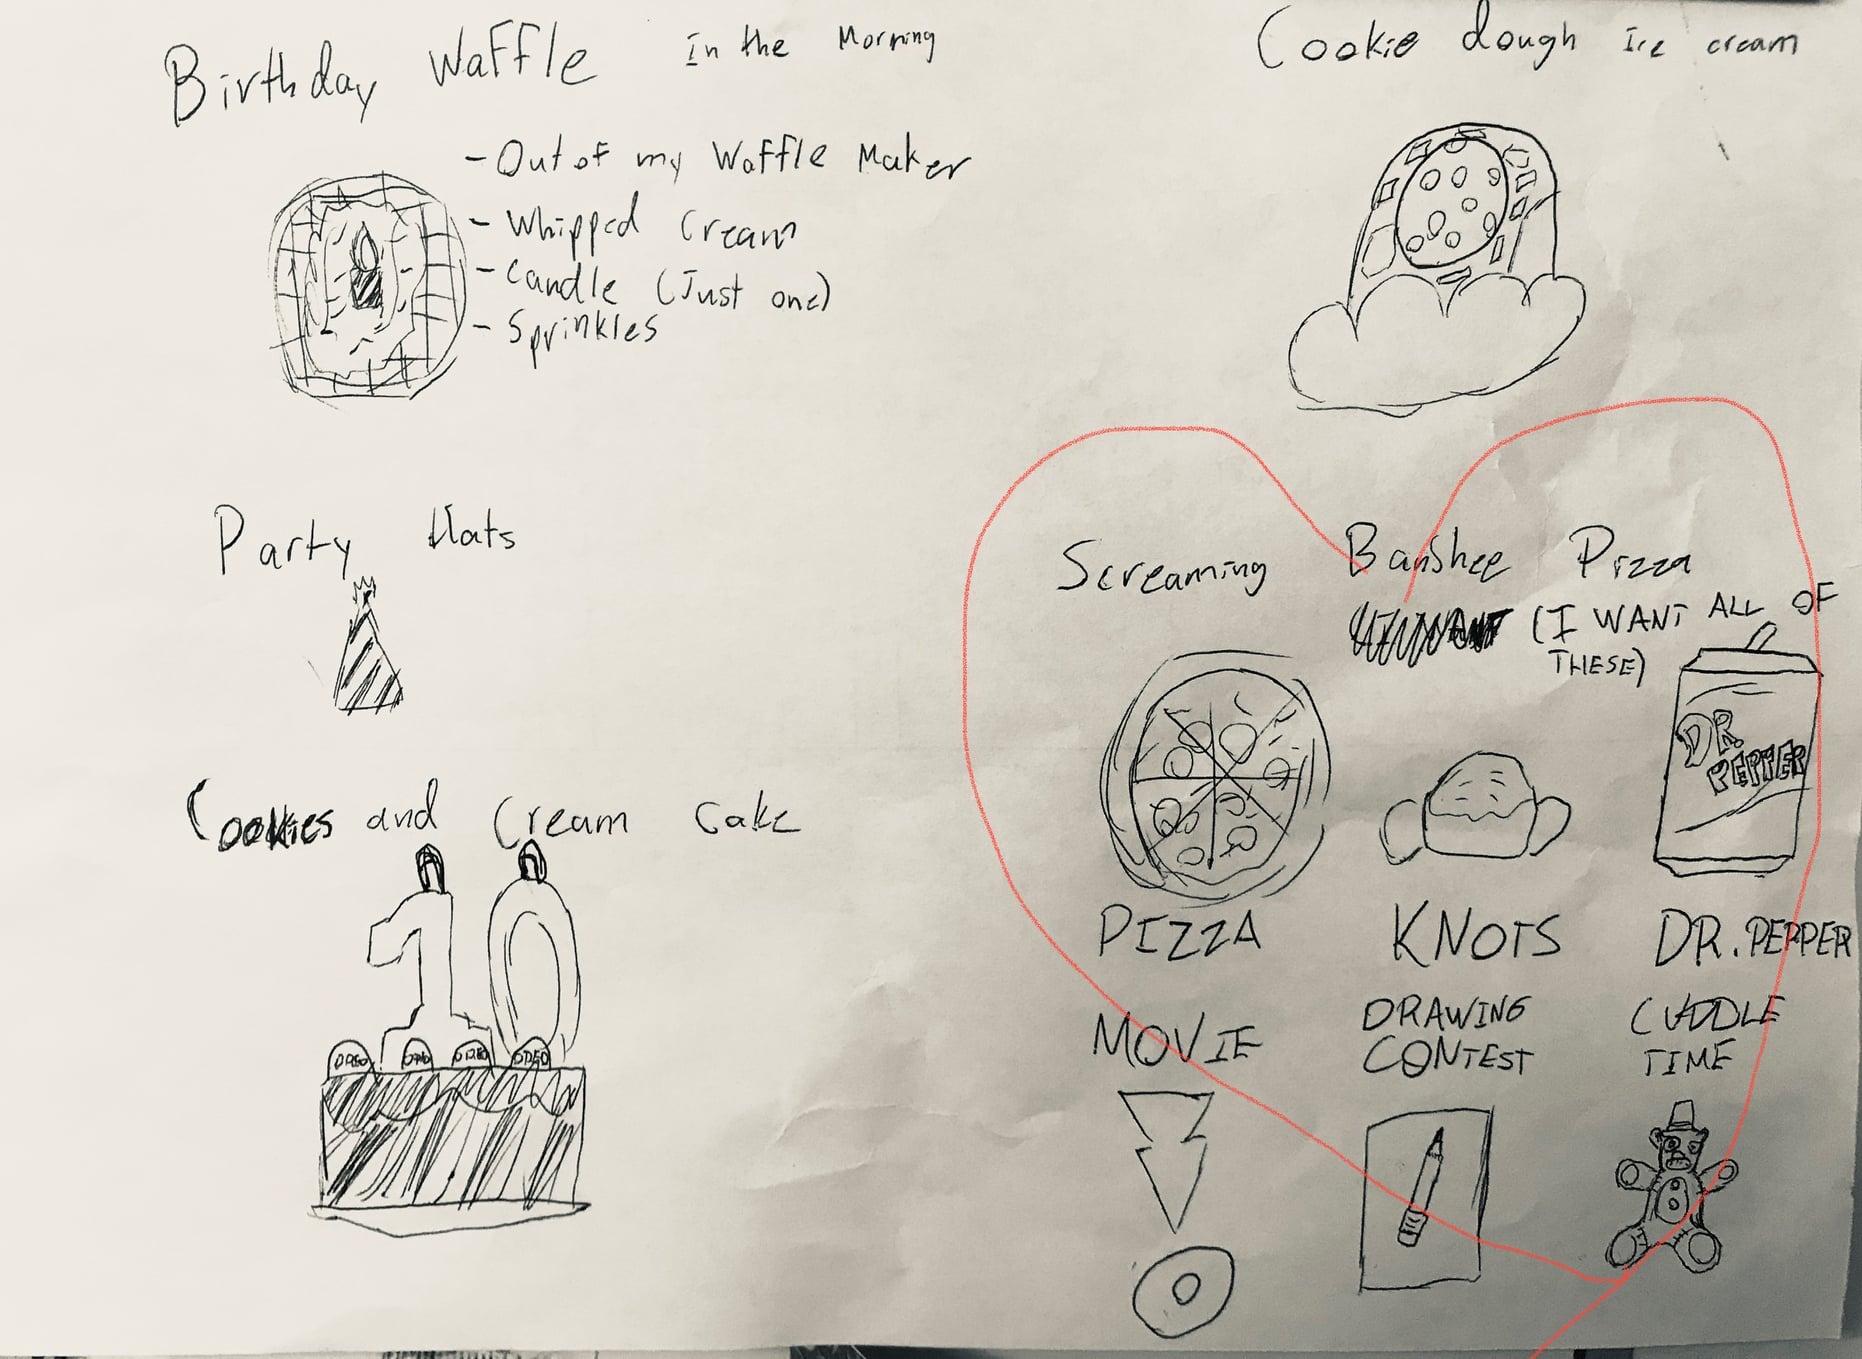 Birthday Waffle In the Morning
- Out of my Waffle Maker
- Whipped Cream
- Candle (Just one)
- Sprinkles
Cookie dough Ice cream
Party Hats
Cookies and Cream Cake
10
OREO OREO OREO OREO
Screaming Banshee Pizza
(I WANT ALL OF
THESE)
DR.
PEPPER
PIZZA
KNOTS
DR. PEPPER
MOVIE
DRAWING
CONTEST
CUDDLE
TIME